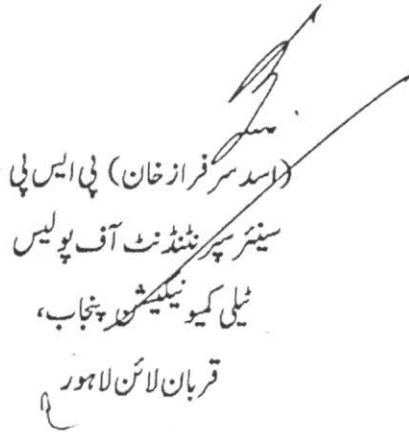 (اسد سرفراز خان) پی ایس پی
سینئر سپرنٹنڈنٹ آف پولیس
ٹیلی کمیونیکیشن پنجاب،
قربان لائن لاہور